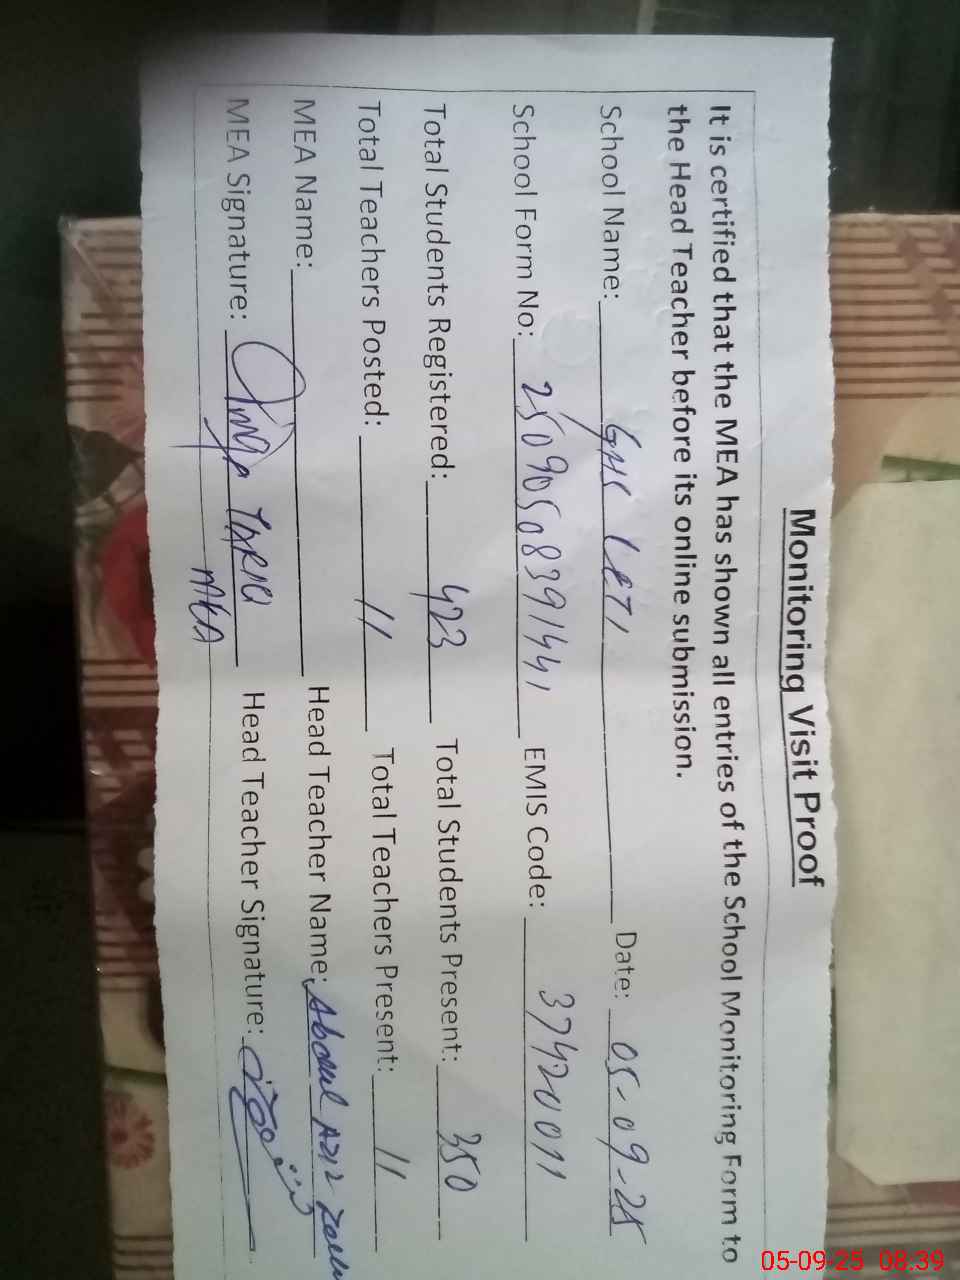 Monitoring Visit Proof
It is certified that the MEA has shown all entries of the School Monitoring Form to
the Head Teacher before its online submission.
School Name: GHS LETI Date: 05-09-25
School Form No: 25090508391441 EMIS Code: 37420011
Total Students Registered: 423 Total Students Present: 350
Total Teachers Posted: 11 Total Teachers Present: 11
MEA Name: Head Teacher Name: Abdul Aziz
MEA Signature: TARIQ Head Teacher Signature:
MEA
05-09-25 08:39